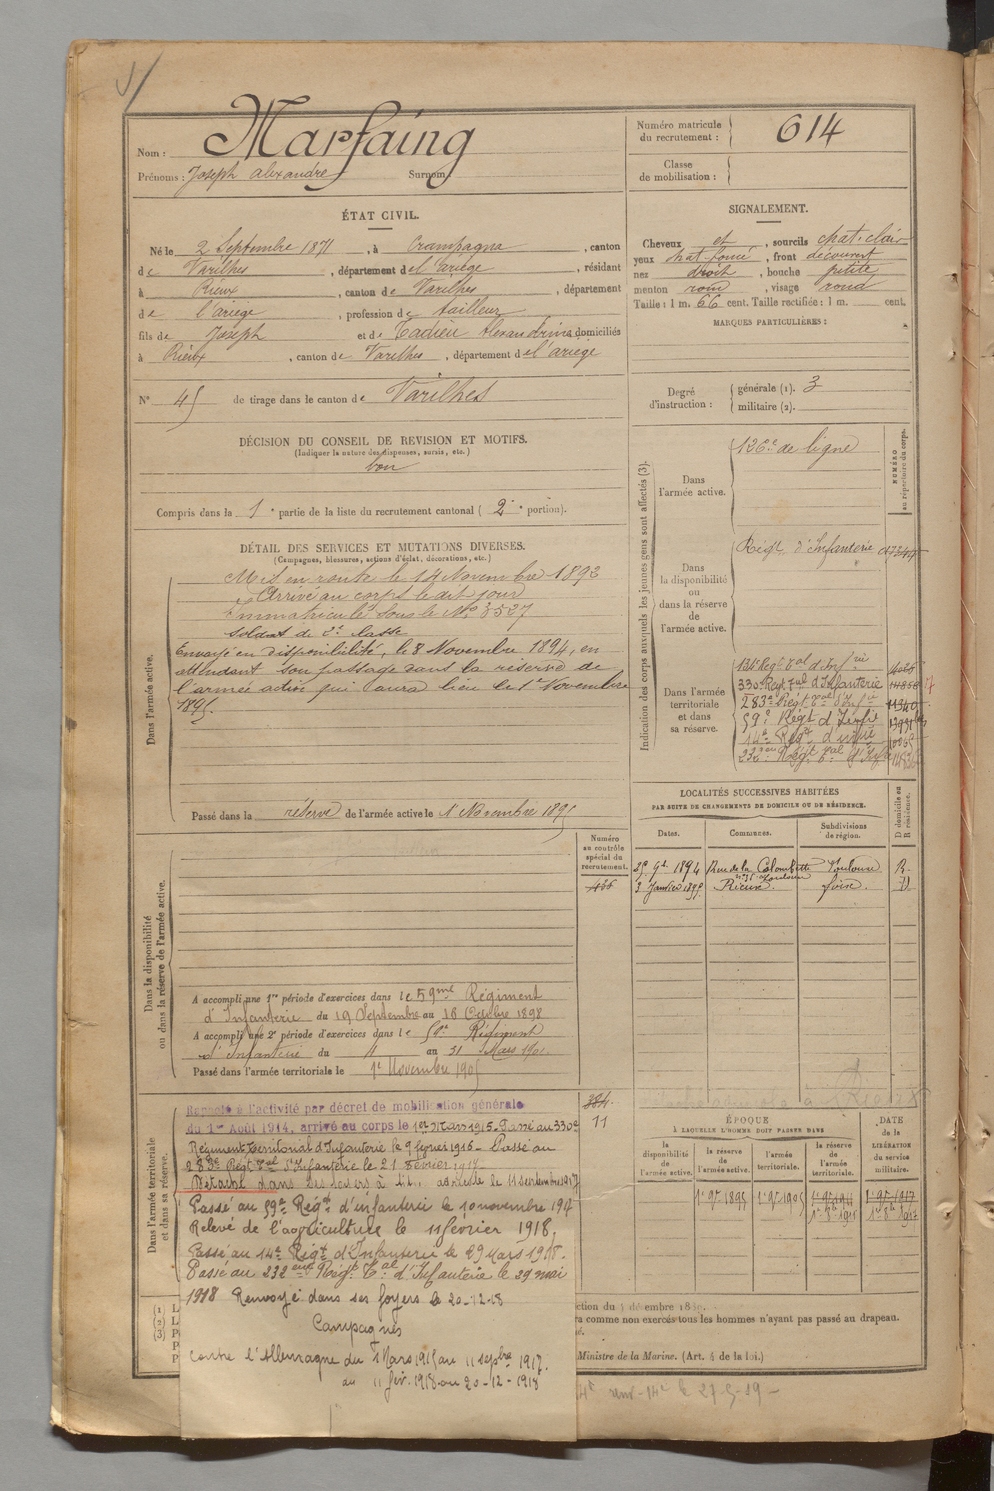 Nom : Marfaing
Prénoms : Joseph Alexandre Surnom
Numéro matricule du recrutement : 614
Classe de mobilisation :
ÉTAT CIVIL.
Né le 2 Septembre 1871, à Crampagna, canton
de Varilhes, département de l'ariège, résidant
à Rieux, canton de Varilhes, département
de l'ariège, profession de tailleur
fils de Joseph et de Tadieu Alexandrine domiciliés
à Rieux, canton de Varilhes, département de l'ariège
N° 45 de tirage dans le canton de Varilhes
SIGNALEMENT.
Cheveux et, sourcils chat. clair
yeux chat foncé, front découvert
nez droit, bouche petite
menton rond, visage rond
Taille : 1 m. 66 cent. Taille rectifiée : 1 m. cent.
MARQUES PARTICULIÈRES :
Degré d'instruction : générale (1). 3
militaire (2).
DÉCISION DU CONSEIL DE REVISION ET MOTIFS.
(Indiquer la nature des dispenses, sursis, etc.)
bon
Compris dans la 1e partie de la liste du recrutement cantonal (2e portion).
DÉTAIL DES SERVICES ET MUTATIONS DIVERSES.
(Campagnes, blessures, actions d'éclat, décorations, etc.)
Dans l'armée active.
Mis en route le 14 Novembre 1893
Arrivé au corps le dit jour
Immatriculé sous le No 3527
soldat de 2e classe
Envoyé en disponibilité, le 8 Novembre 1894, en
attendant son passage dans la réserve de
l'armée active qui aura lieu le 1er Novembre
1895.
Passé dans la réserve de l'armée active le 1er Novembre 1895
Indication des corps auxquels les jeunes gens sont affectés (3).
NUMÉRO au répertoire du corps.
Dans l'armée active.
126e de ligne
Dans la disponibilité ou dans la réserve de l'armée active.
Régt d'Infanterie
Dans l'armée territoriale et dans sa réserve.
330e Régt Tal d'Infanterie
283e Régt Tal d'Infie
59e Régt d'Infie
14e Régt d'infie
232eme Régt Tal d'Infie
LOCALITÉS SUCCESSIVES HABITÉES
PAR SUITE DE CHANGEMENTS DE DOMICILE OU DE RÉSIDENCE.
Dates. Communes. Subdivisions de région. D domicile ou R résidence.
25 9bre 1894 Rue de la Colombette Toulouse R.
Toulouse
3 Janvier 1895 Rieux. foix. D
Dans la disponibilité ou dans la réserve de l'armée active.
Numéro au contrôle spécial du recrutement.
A accompli une 1re période d'exercices dans le 59me Régiment
d'Infanterie du 19 Septembre au 16 Octobre 1898
A accompli une 2e période d'exercices dans le 59e Régiment
d'Infanterie du 4 au 31 Mars 1901.
Passé dans l'armée territoriale le 1er Novembre 1905
Dans l'armée territoriale et dans sa réserve.
384
11
Rappelé à l'activité par décret de mobilisation générale
du 1er Août 1914, arrivé au corps le 1er Mars 1915. Passé au 330e
Régiment Territorial d'Infanterie le 9 février 1916. Passé au
283e Régt Tal d'Infanterie le 21 Février 1917
Détaché dans ses foyers à
le 11 septembre 1917
Passé au 59e Régt d'infanterie le 10 novembre 1917
Relevé de l'agriculture le 11 février 1918.
Passé au 14e Régt d'Infanterie le 29 Mars 1918.
Passé au 232eme Régt Tal d'Infanterie le 29 mai
1918 Renvoyé dans ses foyers le 20-12-18
Campagnes
contre l'Allemagne du 1 Mars 1915 au 11 septbre 1917.
du 11 fév. 1918 au 20-12-1918
ÉPOQUE
À LAQUELLE L'HOMME DOIT PASSER DANS
la disponibilité de l'armée active.
la réserve de l'armée active.
l'armée territoriale.
la réserve de l'armée territoriale.
DATE de la LIBÉRATION du service militaire.
1er 9bre 1895 1er 9bre 1905 1er 9bre 1911 1er 9bre 1917
1er 8bre 1911 1er 8bre 1917
(1) L
(2) L
(3) P
ction du 4 décembre 1889.
ra comme non exercés tous les hommes n'ayant pas passé au drapeau.
Ministre de la Marine. (Art. 4 de la loi.)